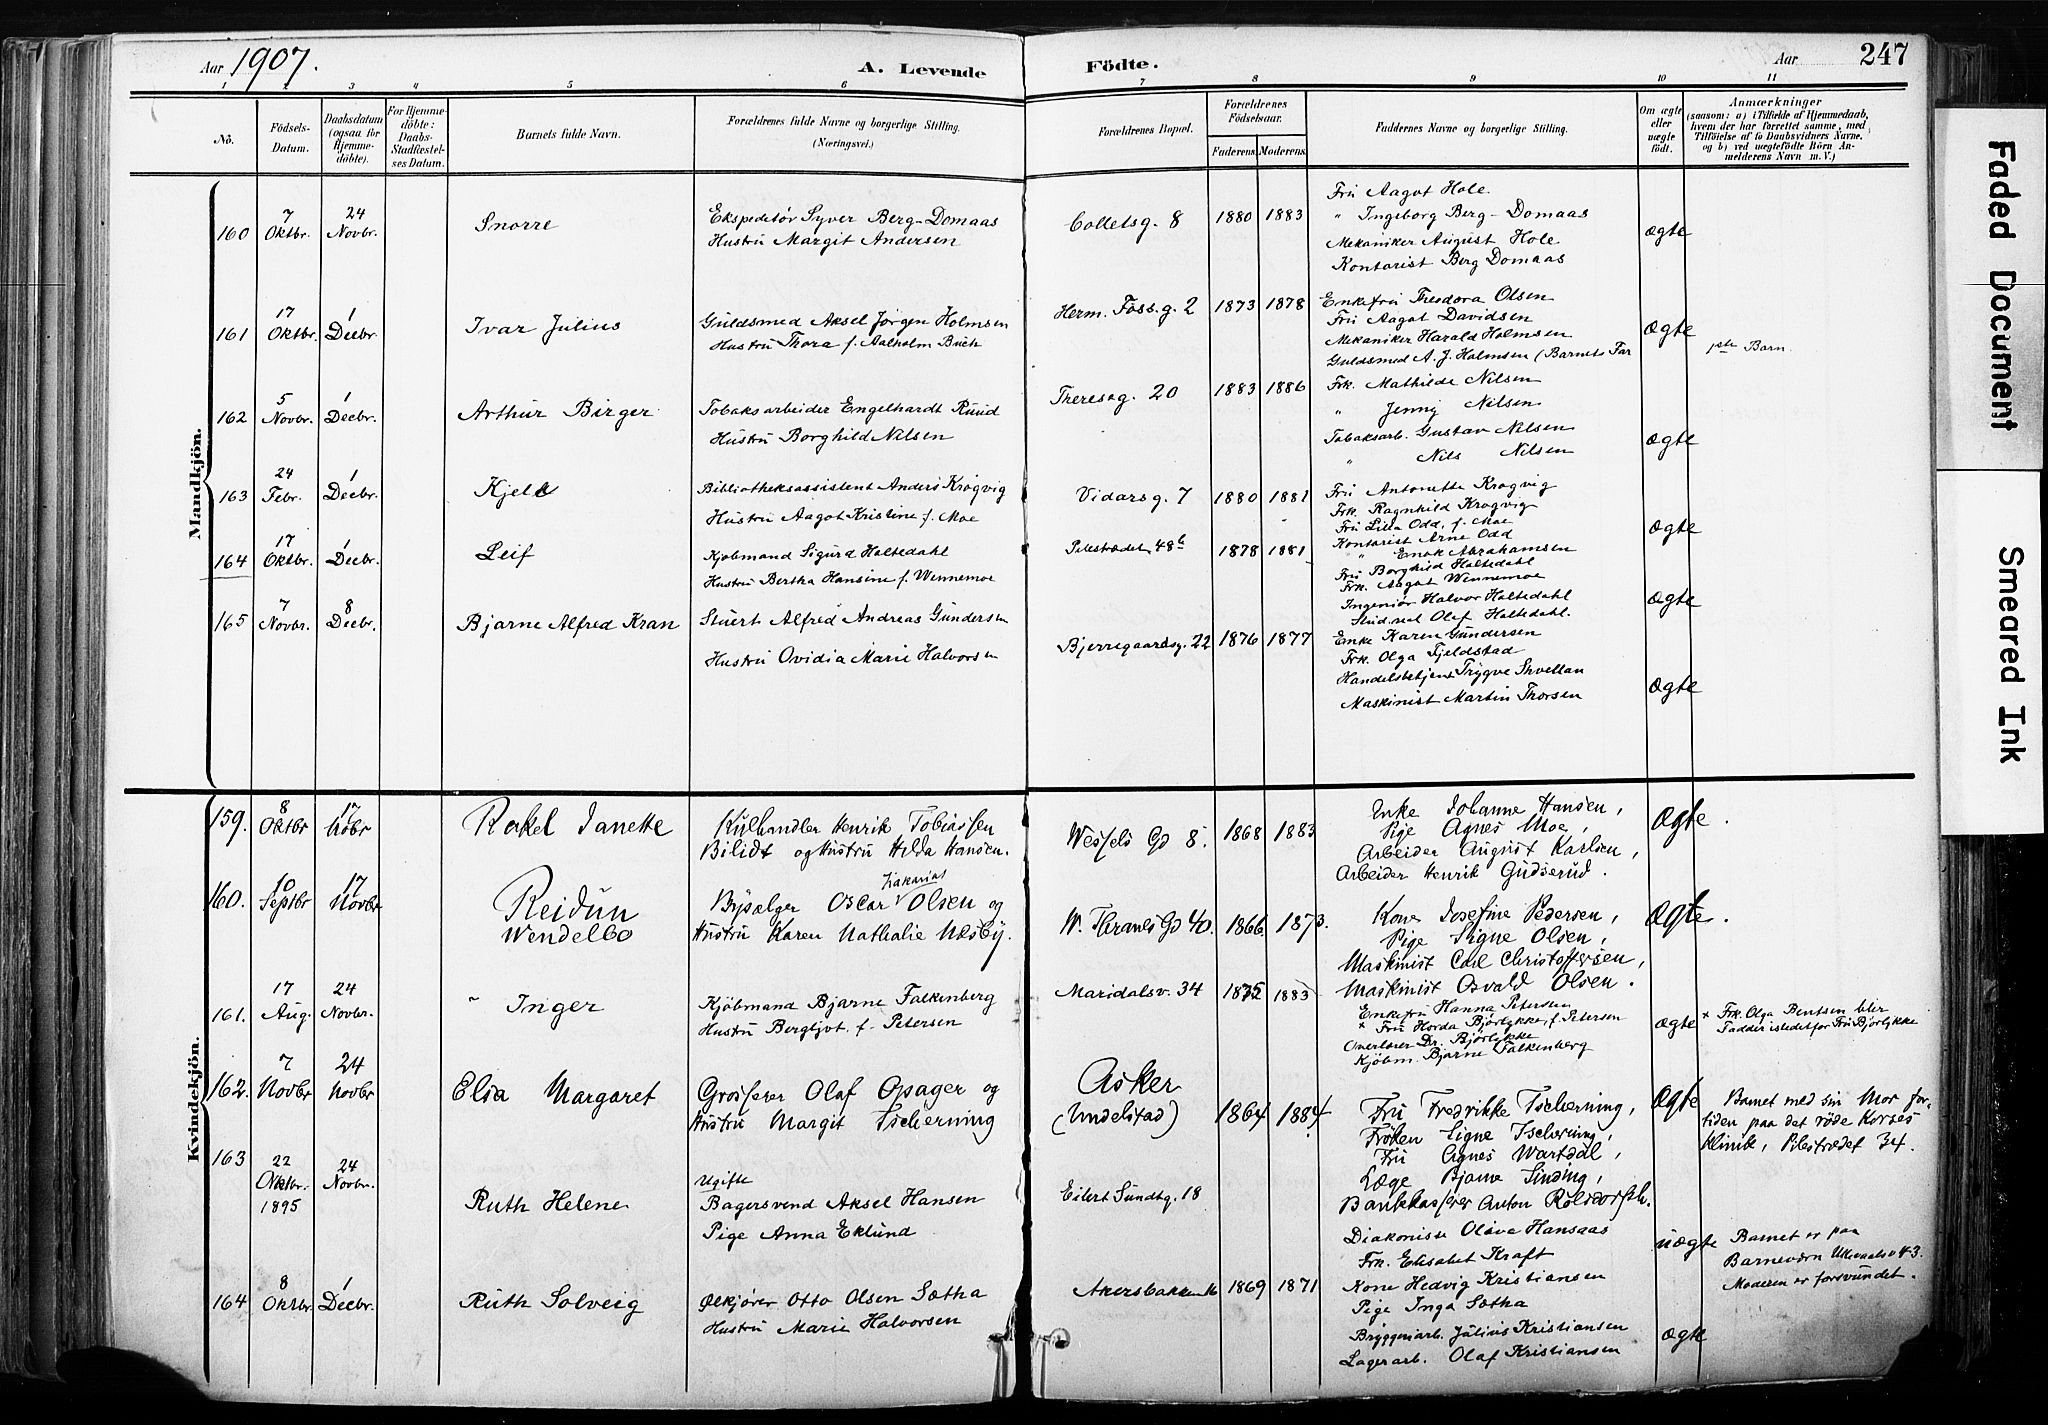 Aar 1907.
A. Levende Födte.
Aar 247
1 2 3 4 5 6 7 8 9 10 11
Nô.
Födsels-Datum.
Daabsdatum (ogsaa för Hjemme-döbte).
For Hjemme-döbte: Daabs-Stadfæstel-ses Datum.
Barnets fulde Navn.
Forældrenes fulde Navne og borgerlige Stilling. (Næringsvei.)
Forældrenes Bopæl.
Forældrenes Födselsaar.
Faderens. Moderens.
Faddernes Navne og borgerlige Stilling.
Om ægte eller uægte födt.
Anmærkninger
(saasom: a) i Tilfælde af Hjemmedaab,
hvem der har forrettet samme, med
Tilföielse af to Daabsvidners Navne,
og b) ved uægtefödte Börn An-
melderens Navn m. V.)
Mandkjön.
160 7 Oktbr. 24 Novbr. Snorre
Ekspeditör Syver Berg-Domaas
Hustru Margit Andersen
Colletsg. 8 1880 1883
Fru Aagot Hole
" Ingeborg Berg-Domaas
Mekaniker August Hole
Kontorist Berg Domaas
ægte
161 17 Oktbr. 1 Decbr. Ivar Julius
Guldsmed Aksel Jörgen Holmsen
Hustru Thora f. Aalholm Buch
Herm. Foss.g. 2 1873 1878
Enkefru Theodora Olsen
Fru Aagot Davidsen
Mekaniker Harald Holmsen
Guldsmed A. J. Holmsen (Barnets Far
ægte
1ste Barn.
162 5 Novbr. 1 Decbr. Arthur Birger
Tobaksarbeider Engelhardt Ruud
Hustru Borghild Nilsen
Theresesg. 20 1883 1886
Frk. Mathilde Nilsen
" Jenny Nilsen
Tobaksarb. Gustav Nilsen
" Nils Nilsen
ægte
163 24 Febr. 1 Decbr. Kjell
Bibliotheksassistent Anders Krogvig
Hustru Aagot Kristine f. Moe
Vidarsg. 7 1880 1881
Fru Antonette Krogvig
Frk. Ragnhild Krogvig
Fru Lilla Odd, f. Moe
Kontorist Arne Odd
" Enok Abrahamsen
ægte
164 17 Oktbr. 1 Decbr. Leif
Kjöbmand Sigurd Holtedahl
Hustru Bertha Hansine f. Wennemoe
Pilestrædet 48b 1878 1881
Fru Borghild Holtedahl
Frk. Aagot Wennemoe
Ingeniör Halvor Holtedahl
Stud.real Olaf Holtedahl.
ægte
165 7 Novbr. 8 Decbr. Bjarne Alfred Kran
Stuert Alfred Andreas Gundersen
Hustru Ovidia Marie Halvorsen
Bjerregaardsg. 22 1876 1877
Enke Karen Gundersen
Frk. Olga Fjeldstad
Handelsbetjent Trygve
Maskinist Martin Thorsen
ægte
Kvindekjön.
159. 8 Oktbr 17 Novbr Rakel Janette
Kulhandler Henrik Tobiassen
Bilidt og Hustru Hilda Hansen.
Wessels Gd 8. 1868 1883
Enke Johanne Hansen,
Pige Agnes Moe,
Arbeider August Karlsen,
Arbeider Henrik Gudserud.
ægte.
160. 10 Septbr 17 Novbr Reidun Wendelbo
Bypælger Oscar Zakarias Olsen og
Hustru Karen Nathalie Næsby.
W. Thranes Gd 40. 1866. 1873.
Kone Josefine Pedersen,
Pige Signe Olsen,
Maskinist Carl Christoffersen,
Maskinist Osvald Olsen.
ægte.
161. 17 Aug. 24 Novbr. Inger
Kjöbmand Bjarne Falkenberg
Hustru Bergljot f. Petersen
Maridalsv. 34 1875 1883
Enkefru Hanna Petersen
+ Fru Horda Björlykke, f. Petersen
Overlærer Dr. Björlykke
Kjöbm. Bjarne Falkenberg
ægte
+ Frk. Olga Bentsen blir
Fadder istedetfor Fru Björlykke
162. 7 Novbr 24 Novbr Elsa Margaret
Grosserer Olaf Opsager og
Hustru Margit Tscherning
Asker (Undelstad) 1864 1884
Fru Fredrikke Tscherning,
Fröken Signe Tscherning,
Fru Agnes Wartdal,
Læge Bjarne Sinding,
Bankkasserer Anton Rolsdorph.
ægte
Barnet med sin Mor for-
tiden paa det röde Korses
klinik, Pilestrædet 34.
163 22 Oktbr. 1895 24 Novbr. Ruth Helene
Ugifte
Bagersvend Aksel Hansen
Pige Anna Eklund
Eilert Sundtsg. 18
Diakonisse Olave Hansaas
Frk. Elisabet Kraft
uægte
Barnet er paa
Barneværn Ullevaalsv 43.
Moderen er forsvundet.
164 8 Oktbr. 1 Decbr. Ruth Solveig
Ølkjörer Otto Olsen Sætha
Hustru Marie Halvorsen
Akersbakken 16 1869 1871
Kone Hedvig Kristiansen
Pige Inga Sætha
Bryggeriarb. Julius Kristiansen
Lagerarb. Olaf Kristiansen
ægte
Faded Document
Smeared Ink